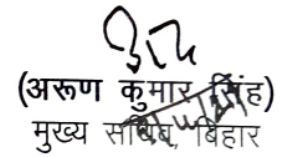 (अरूण कुमार सिंह)
मुख्य सचिव, बिहार